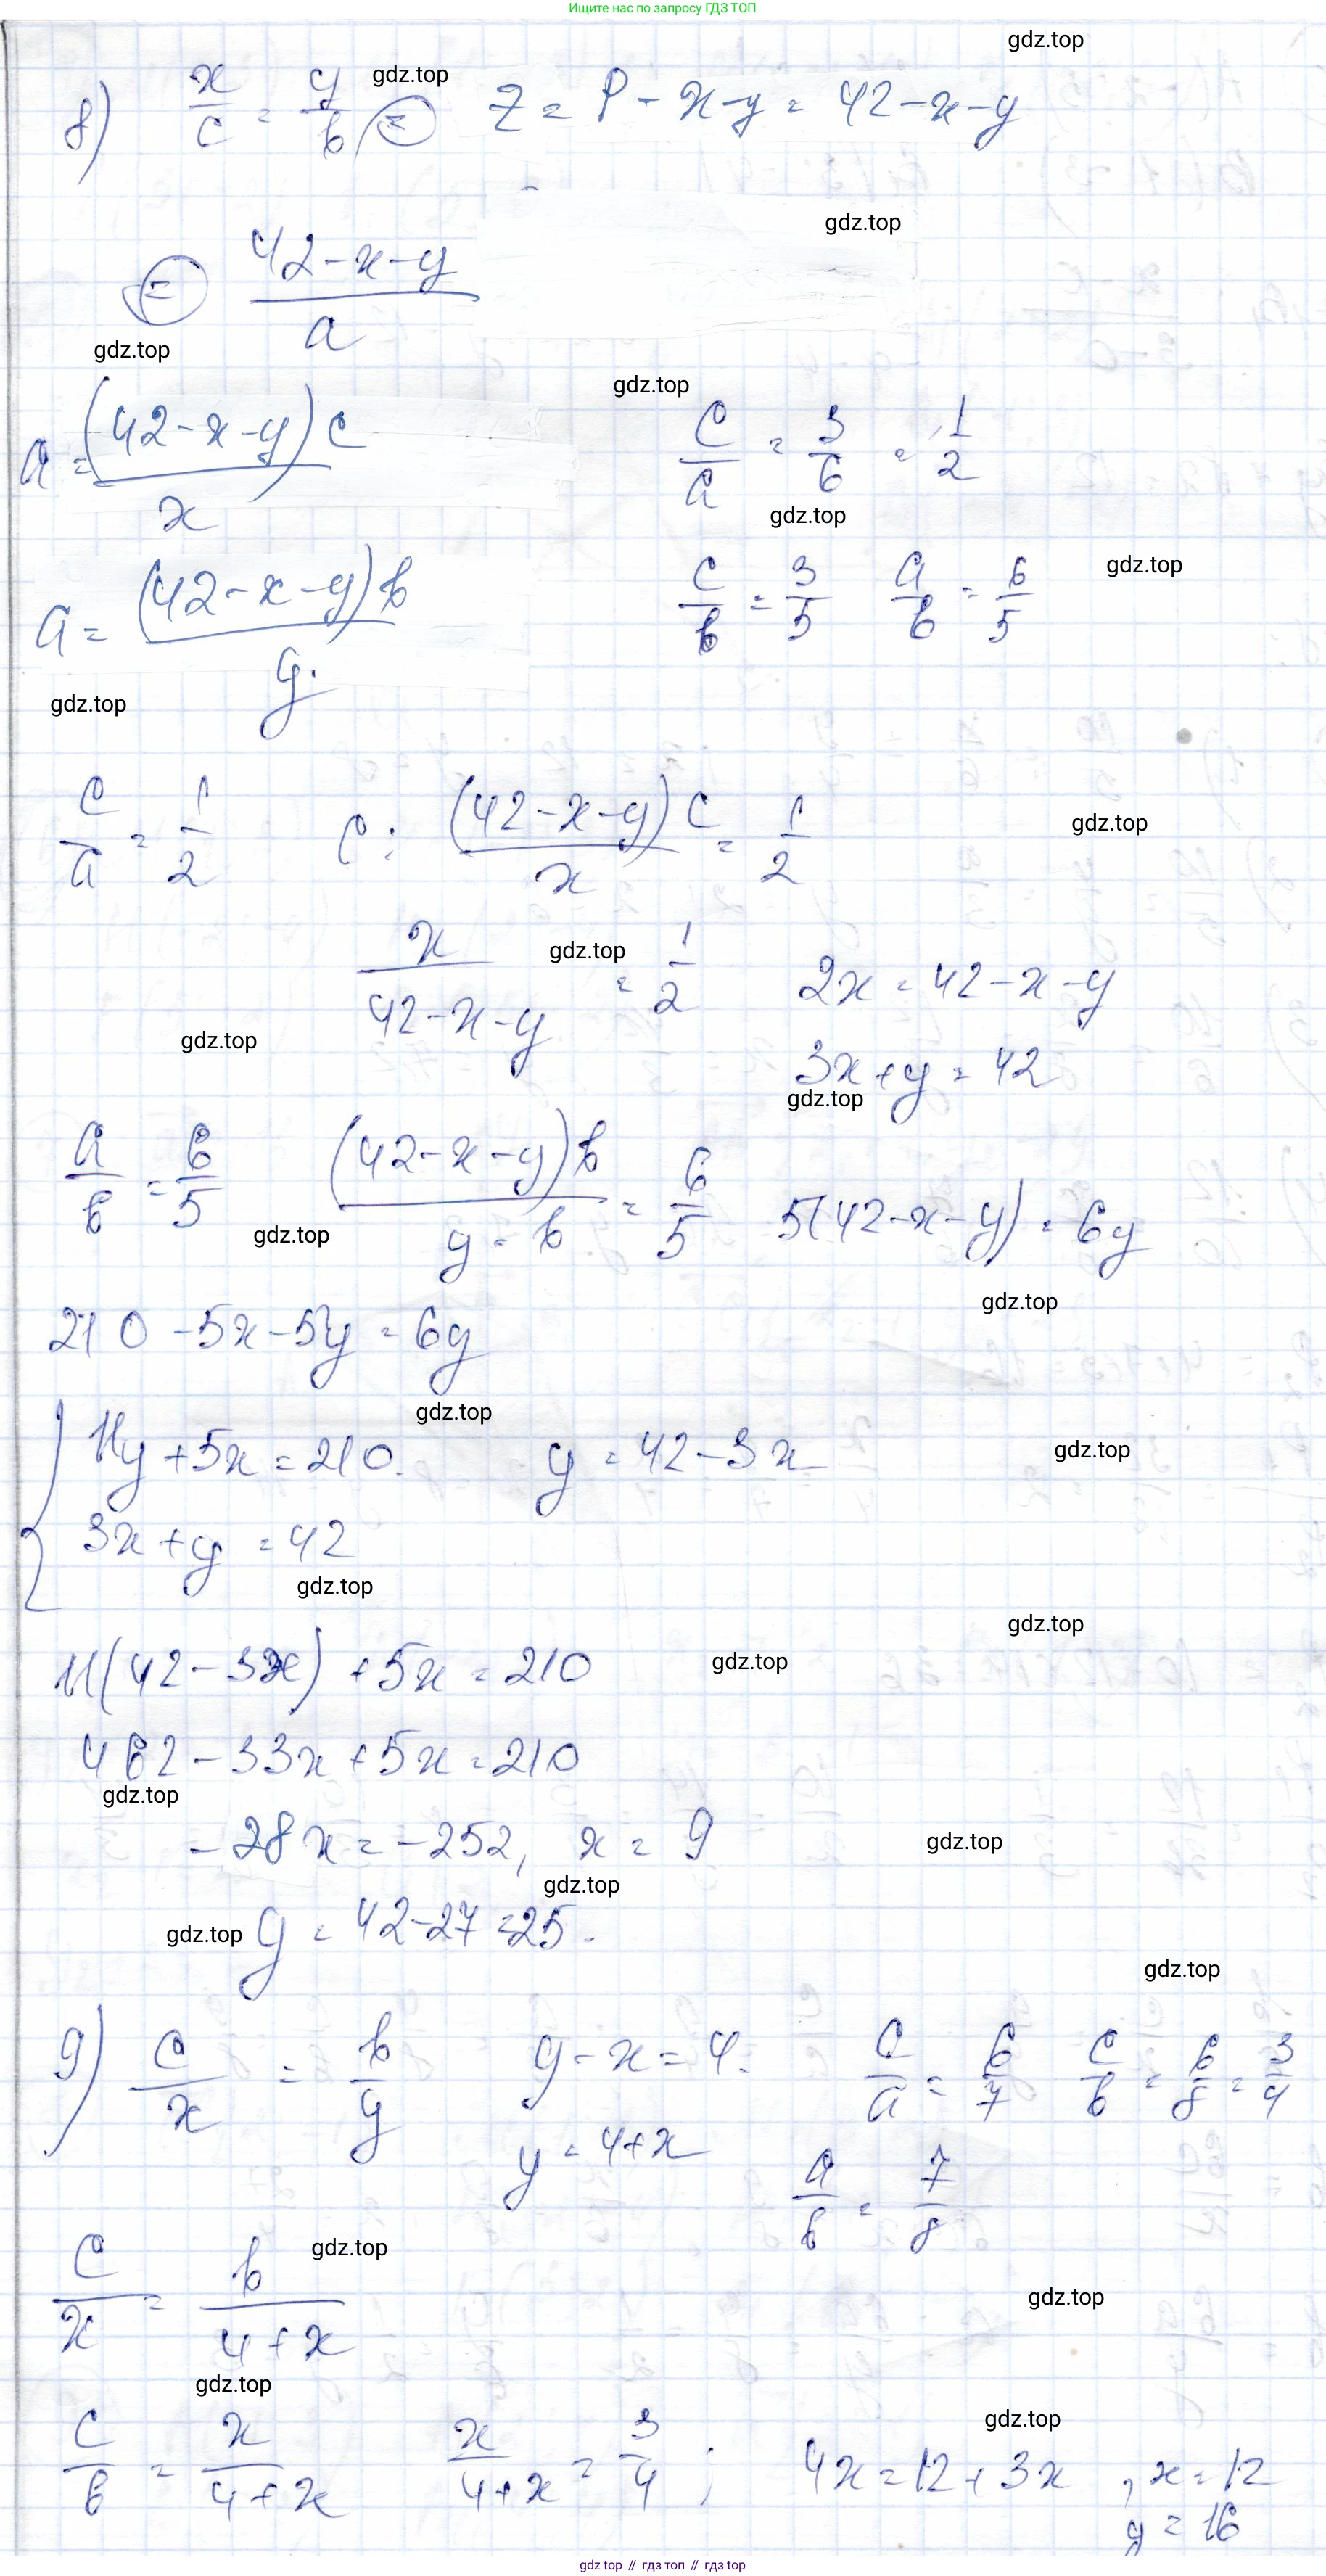 Ищите нас по запросу ГДЗ ТОП
gdz.top
8) x/c = y/b = z = P - x - y = 42 - x - y
gdz.top
gdz.top
= (42 - x - y)/a
gdz.top
gdz.top
a = (42 - x - y)c/x c/a = 3/6 = 1/2
gdz.top
a = (42 - x - y)b/y. c/b = 3/5 a/b = 6/5
gdz.top
gdz.top
c/a = 1/2 c : (42 - x - y)c/x = 1/2
gdz.top
x/(42 - x - y) = 1/2 2x = 42 - x - y
gdz.top
gdz.top
3x + y = 42
gdz.top
a/b = 6/5 (42 - x - y)b/(y - b) = 6/5 5(42 - x - y) = 6y
gdz.top
gdz.top
210 - 5x - 5y = 6y
gdz.top
{ 11y + 5x = 210. y = 42 - 3x
gdz.top
3x + y = 42
gdz.top
gdz.top
11(42 - 3x) + 5x = 210
gdz.top
462 - 33x + 5x = 210
gdz.top
-28x = -252, x = 9
gdz.top
gdz.top
gdz.top
y = 42 - 27 = 25.
gdz.top
9) c/x = b/y y - x = 4. c/a = 6/7 c/b = 6/8 = 3/4
y = 4 + x a/b = 7/8
gdz.top
c/x = b/(4 + x)
gdz.top
gdz.top
gdz.top
c/b = x/(4 + x) x/(4 + x) = 3/4 ; 4x = 12 + 3x , x = 12
y = 16
gdz top // гдз топ // гдз top